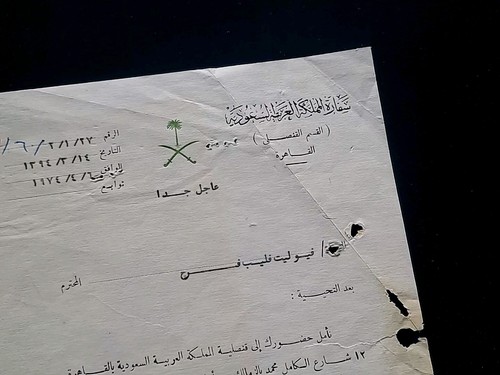 سفارة المملكة العربية السعودية
( القسم القنصلى )
القاهرة
الرقم ٢/١/٢٧ / ٦٠ /
التاريخ ١٣٩٤/٣/١٤
الموافق ١٩٧٤/٤/٦
توابع
عاجل جدا
/ فيوليت فليب فرج
المحترم
بعد التحية :
نأمل حضورك إلى قنصلية المملكة العربية السعودية بالقاهرة
١٢ شارع الكامل محمد بالزمالك